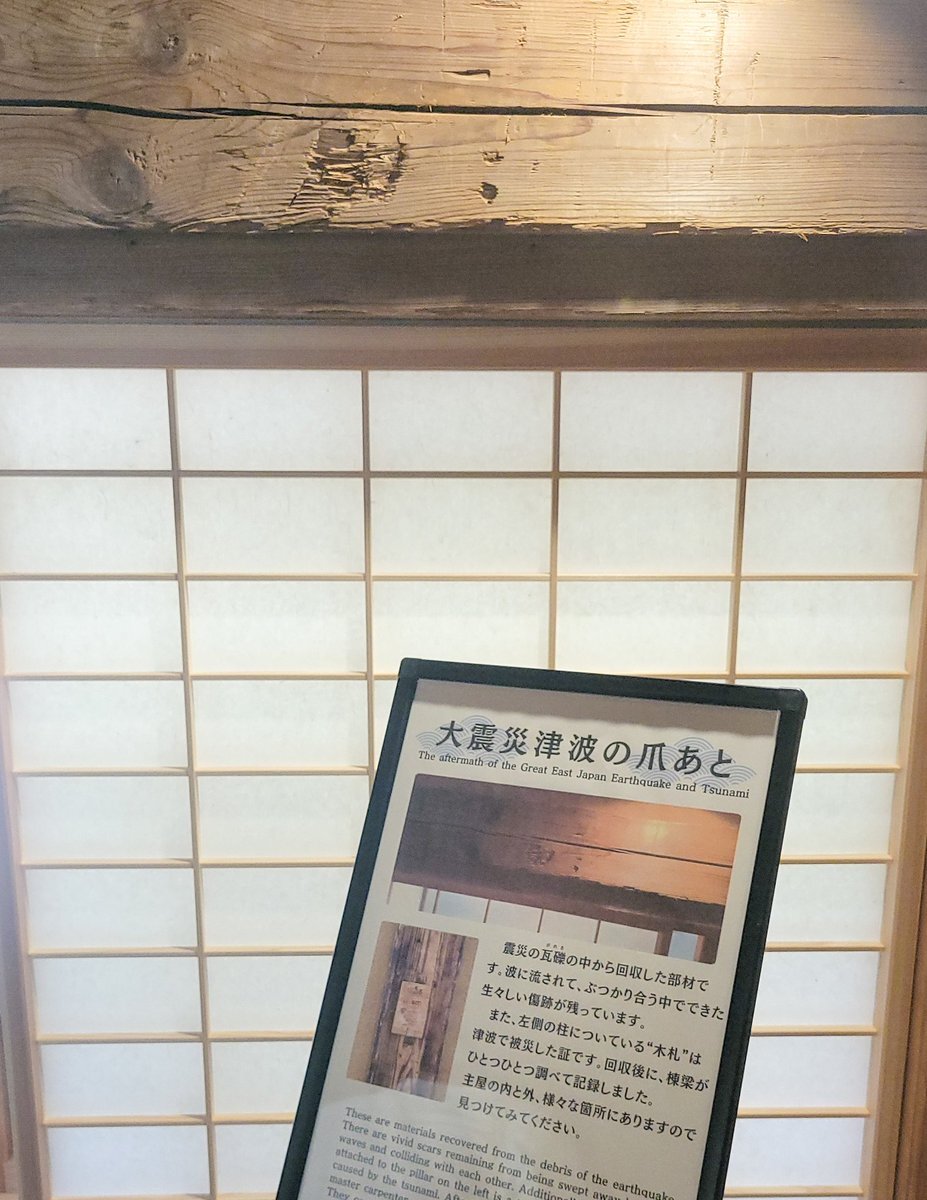 大震災津波の爪あと
The aftermath of the Great East Japan Earthquake and Tsunami
震災の瓦礫の中から回収した部材で
す。波に流されて、ぶつかり合う中でできた
生々しい傷跡が残っています。
また、左側の柱についている“木札”は
津波で被災した証です。回収後に、棟梁が
ひとつひとつ調べて記録しました。
主屋の内と外、様々な箇所にありますので
見つけてみてください。
These are materials recovered from the debris of the earthquake
There are vivid scars remaining from being swept away
waves and colliding with each other. Additionally
attached to the pillar on the left is a
caused by the tsunami.
master carpenter
They